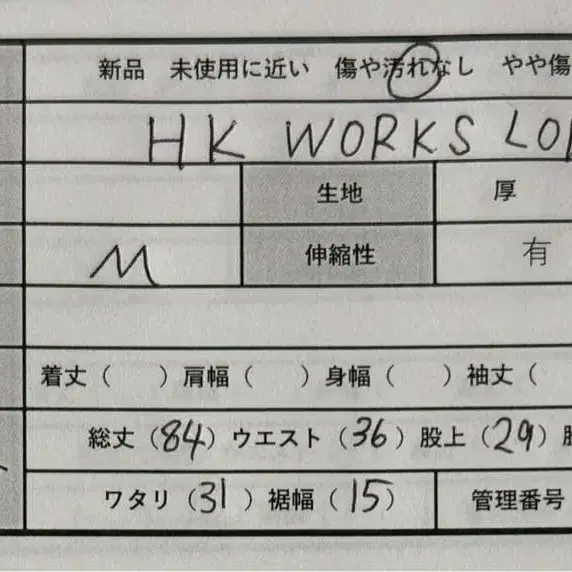 新品 未使用に近い 傷や汚れなし やや傷
HK WORKS LO
生地 厚
M 伸縮性 有
着丈（ ）肩幅（ ）身幅（ ）袖丈（
総丈（84）ウエスト（36）股上（29）
ワタリ（31）裾幅（15） 管理番号